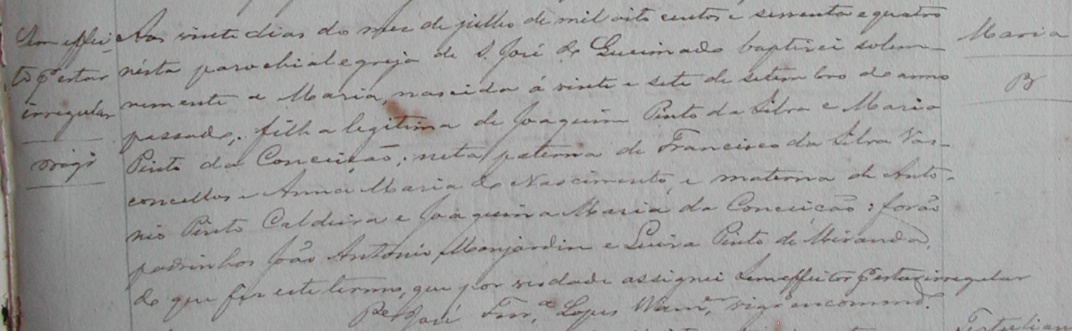 Sem effei
to p.r estar
irregular
Aos vinte dias do mez de julho de mil oito centos e sessenta e quatro
nésta parochial egreja de S. José do Queimado baptizei solem-
nemente a Maria, nascida á vinte e sete de setembro do anno
passado; filha legitima de Joaquim Pinto da Silva e Maria
Pinto da Conceição; neta paterna de Francisco da Silva Vas-
concellos e Anna Maria do Nascimento, e materna de Antó-
nio Pinto Caldeira e Joaquina Maria da Conceição: forão
padrinhos João António Manjardin e Luiza Pinto de Miranda,
do que fiz este termo, que por verdade assignei Sem effeito p.r estar irregular
P.e José Lopes vig.o encommd.o
Maria
B